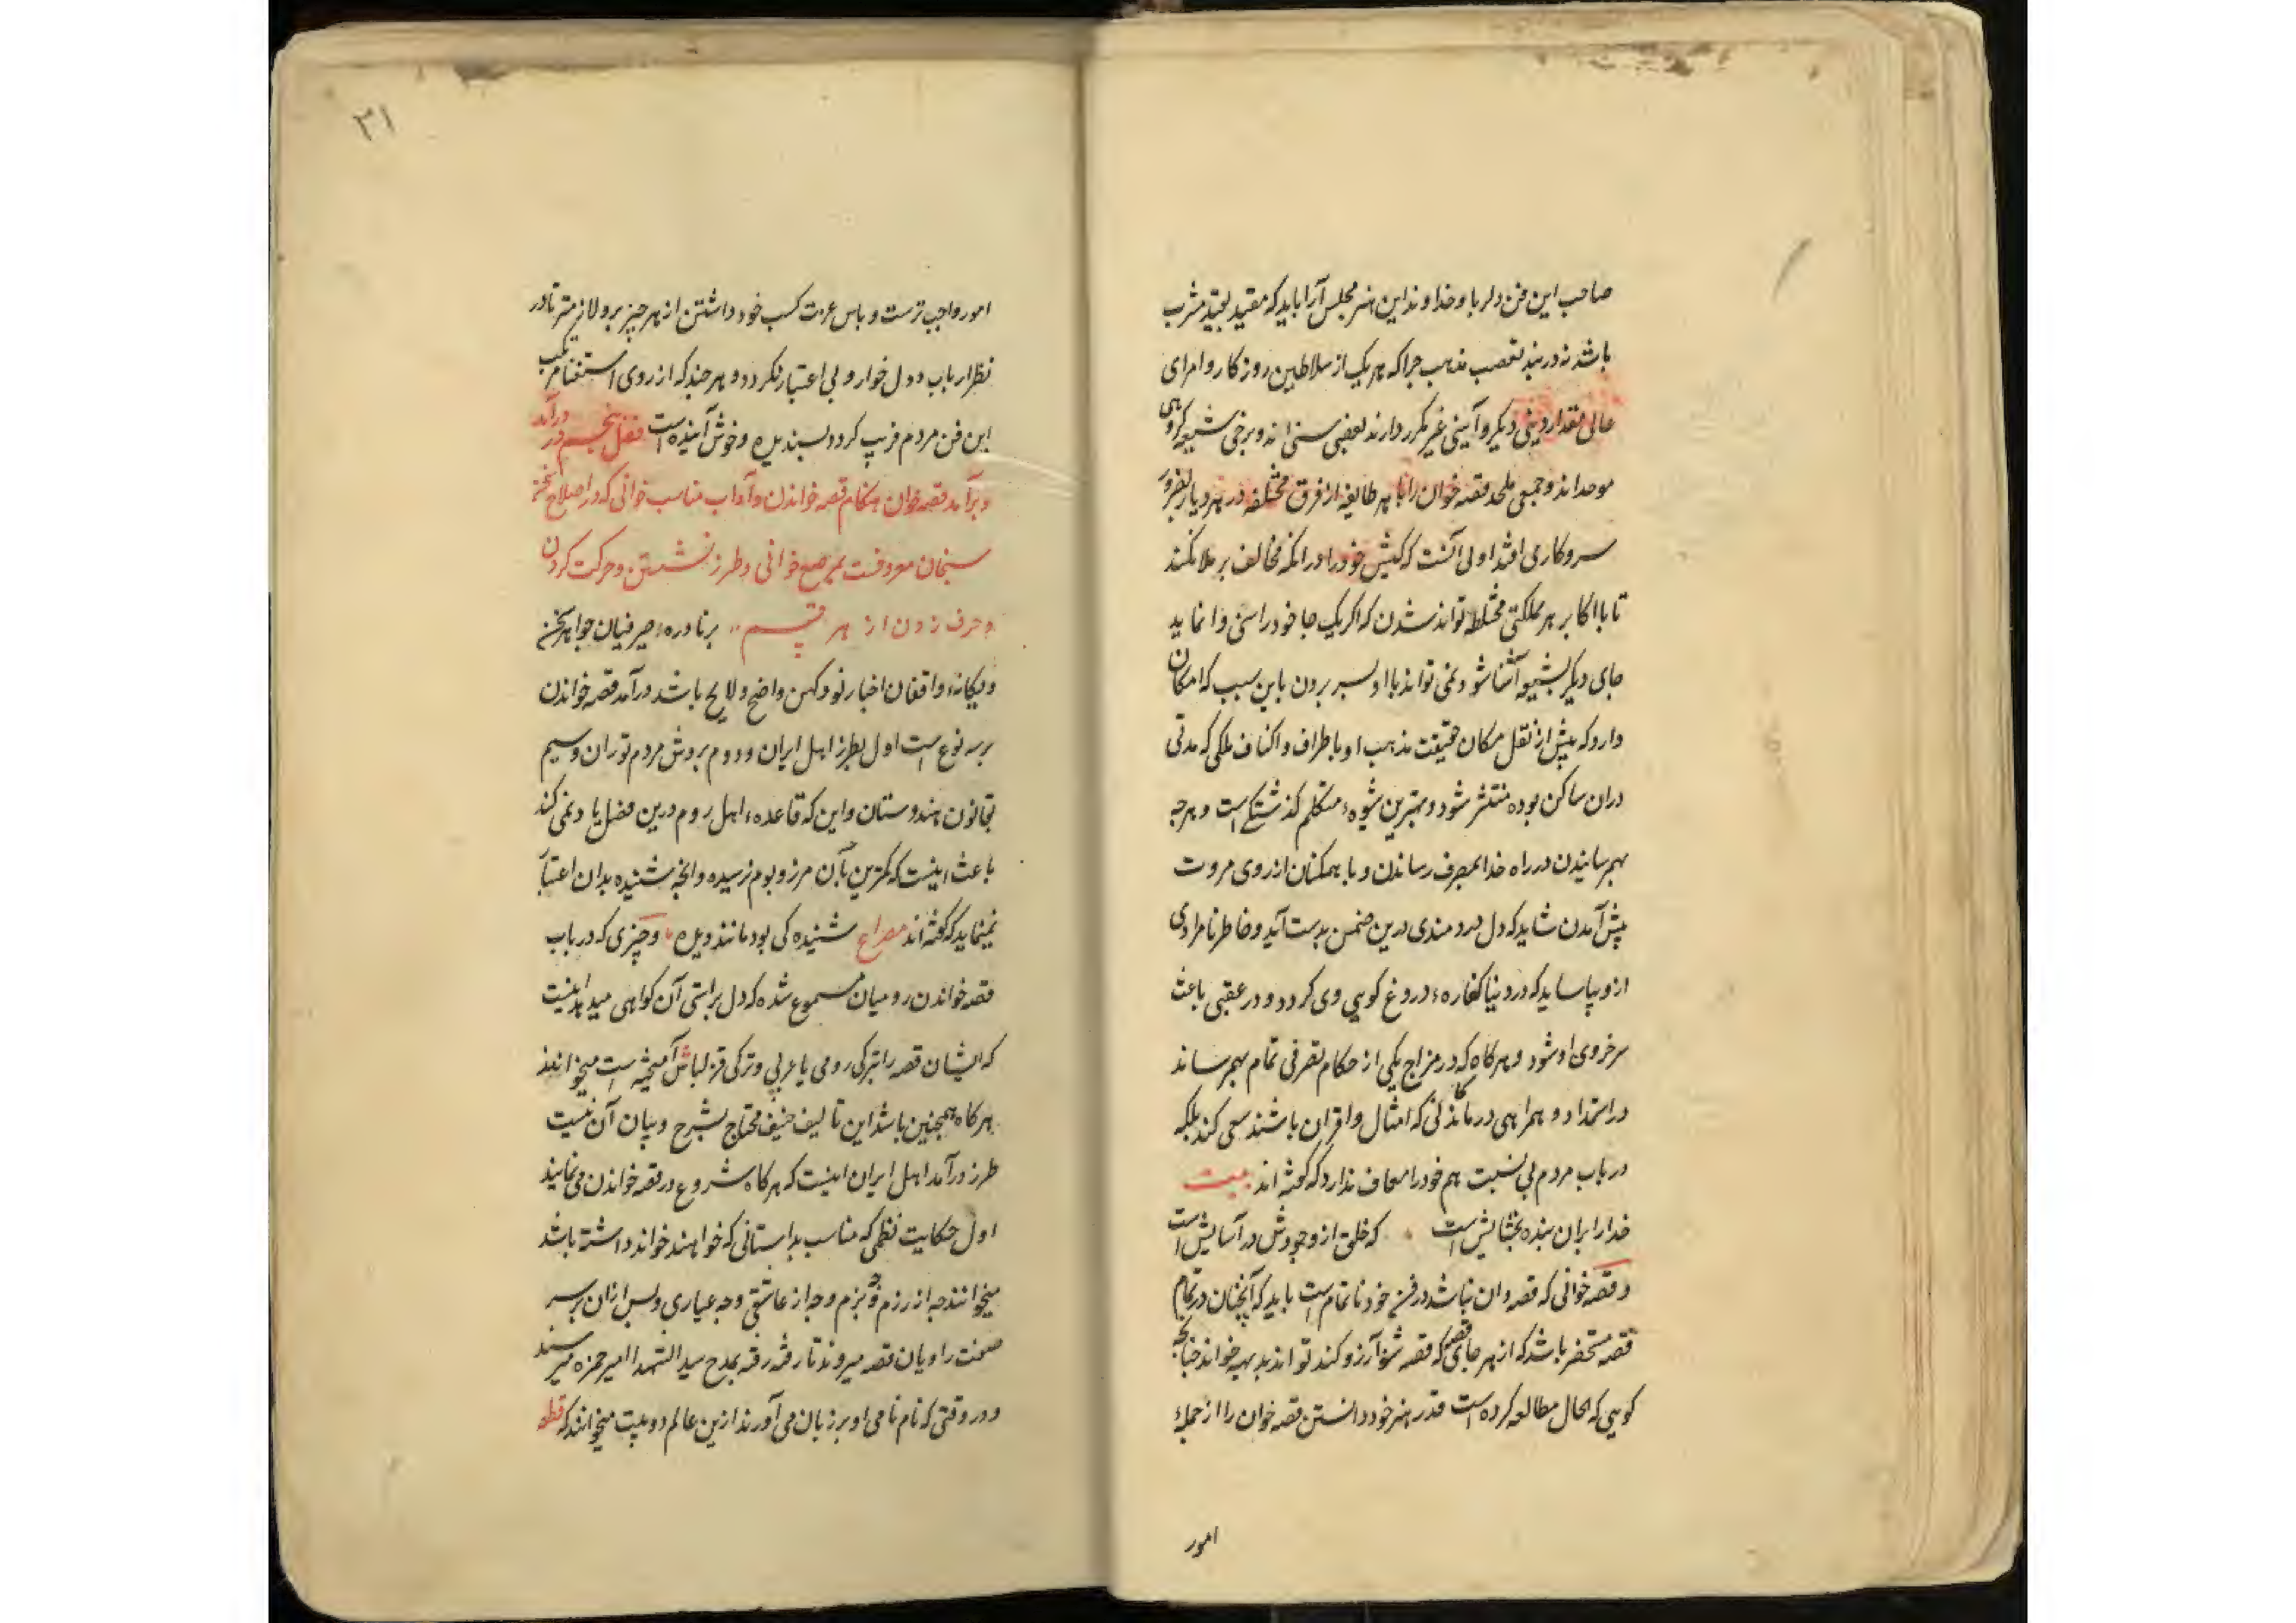 صاحب این فن دلربا و خداوند این هنر مجلس آرا باید که مقید بقید مشرب
باشد نه در بند تعصب مذهب جرا که هر یک از سلاطین روزکار و امرای
عالی مقدار دینی دیکر و آیینی غیر مکرر دارند بعضی سنی اند و برخی شیعه کروهی
موحد اند و جمعی ملحد قصه خوان را با هر طایفه از فرق مختلفه در هر دیار
سر و کار می افتد اولی آنست که کیش خود را در انکه مخالف بر ملا نکند
تا با اکابر هر مملکتی مختلط تواند شدن که اکر یک جا خود را سنی وا نماید
جای دیکر بشیعه آشنا شود نمی تواند با او بسر بردن باین سبب که امکان
دارد که پیش از نقل مکان حقیقت مذهب او باطراف و اکناف ملکی که مدتی
دران ساکن بوده منتشر شود و بهترین شیوهٔ متکلم کذشتکی است و هر جه
بهم رسانیدن در راه خدا بمصرف رساندن و با همکنان از روی مروت
پیش آمدن شاید که دل دردمندی درین ضمن بدست آید و خاطر نامرادی
ازو بیاساید که در دنیا کفارهٔ دروغ کویی وی کردد و در عقبی باعث
سرخروی او شود و هر کاه که در مزاج یکی از حکام تصرفی تمام بهم رساند
در امداد و همراهی درماندکانی که امثال و اقران باشند سعی کند بلکه
در باب مردم بی نسبت هم خود را معاف ندارد که کفته اند بیت
خدا را بران بنده بخشایش است که خلق از وجودش در آسایش است
و قصه خوانی که قصه دان نباشد در فن خود نا تمام است باید که آنچنان در تمام
قصه مستحضر باشد که از هر جای قصه که قصه شنو آرزو کند تواند بدیهه خواند جنانجه
کویی که الحال مطالعه کرده است قدر هنر خود دانستن قصه خوان را از جملهٔ
امور
۳۱
امور واجب ترست و پاس عزت کسب خود داشتن از هر جیز برو لازم تر تا در
نظر ارباب دول خوار و بی اعتبار نکردد و هر جند که از روی استغنا مرتکب
این فن مردم فریب کردد پسندیده و خوش آینده است فصل پنجم در درآمد
و برآمد قصه خوان هنکام قصه خواندن و آداب مناسب خوانی که در اصلاح سخن
سنجان معروفست بمرصع خوانی و طرز نشستن و حرکت کردن
و حرف زدن از هر قسم بر نادرهٔ صیرفیان جواهر سخن
و یکانهٔ واقفان اخبار نو و کهن واضح و لایح باشد درآمد قصه خواندن
بر سه نوع است اول بطرز اهل ایران و دوم بروش مردم توران و سیم
بقانون هندوستان و این که قاعدهٔ اهل روم درین فصل یاد نمی کند
باعث اینست که کمترین بآن مرز و بوم نرسیده و انچه شنیده بدان اعتبار
نمینماید که کفته اند مصراع شنیده کی بود مانند دیده و چیزی که در باب
قصه خواندن رومیان مسموع شده که دل براستی آن کواهی میدهد اینست
که ایشان قصه را بترکی رومی یا عربی و ترکی قزلباش آمیخته است میخوانند
هر کاه همچنین باشد این تالیف حنیف محتاج بشرح و بیان آن نیست
طرز درآمد اهل ایران اینست که هر کاه شروع در قصه خواندن می نمایند
اول حکایت نظمی که مناسب بداستانی که خواهند خواند داشته باشد
میخوانند جه از رزم و جه بزم و جه از عاشقی و جه عیاری و پس ازان بر سر
صحت راویان قصه میروند تا رفته رفته بمدح سید الشهدا امیر حمزه میرسند
و در وقتی که نام نامی او بر زبان می آورند ازین عالم دو بیت میخوانند که قطعه